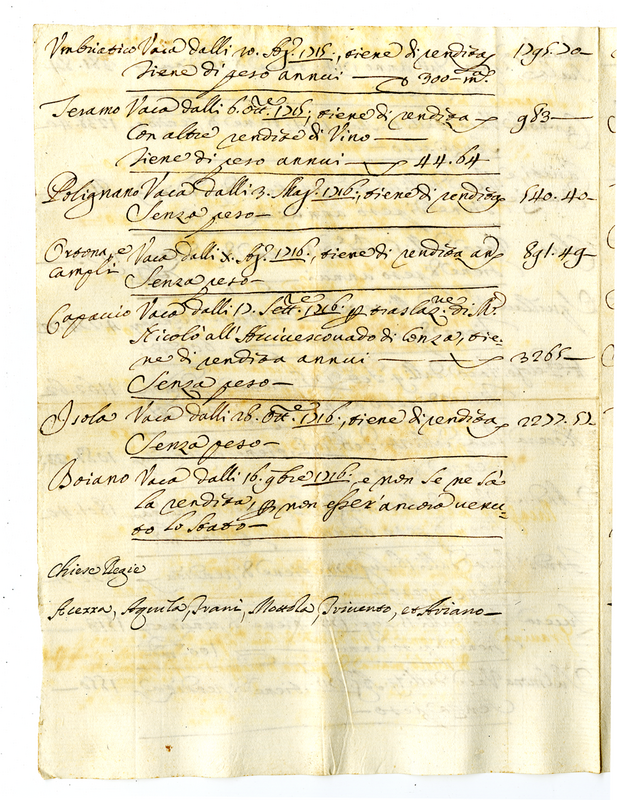 Umbriatico Vaca dalli 20. Ag.º 1715., tiene di rendita 1795.70
Tiene di peso annui 300 m.ª
Teramo Vaca dalli 6. Ott.e 1715, tiene di rendita 983
Con altre rendite di Vino
Tiene di peso annui 44.64
Polignano Vaca dalli 3. Mag.º 1716., tiene di rendita 540.40
Senza peso
Ortona, e Campli Vaca dalli X. Ag.º 1716., tiene di rendita an. 891.49
Senza peso
Capaccio Vaca dalli 17. Sett.e 1716. p traslaz.ne di M.r
Nicolò all'Arcivescovado di Conza, tie-
ne di rendita annui 3265
Senza peso
Isola Vaca dalli 26. Ott.e 1716., tiene di rendita 2277.52
Senza peso
Boiano Vaca dalli 16. 9bre 1716. e non se ne sà
la rendita, p non esser'ancora venu-
to lo Stato
Chiese Regie
Acerra, Aquila, Trani, Mottola, Trivento, et Ariano